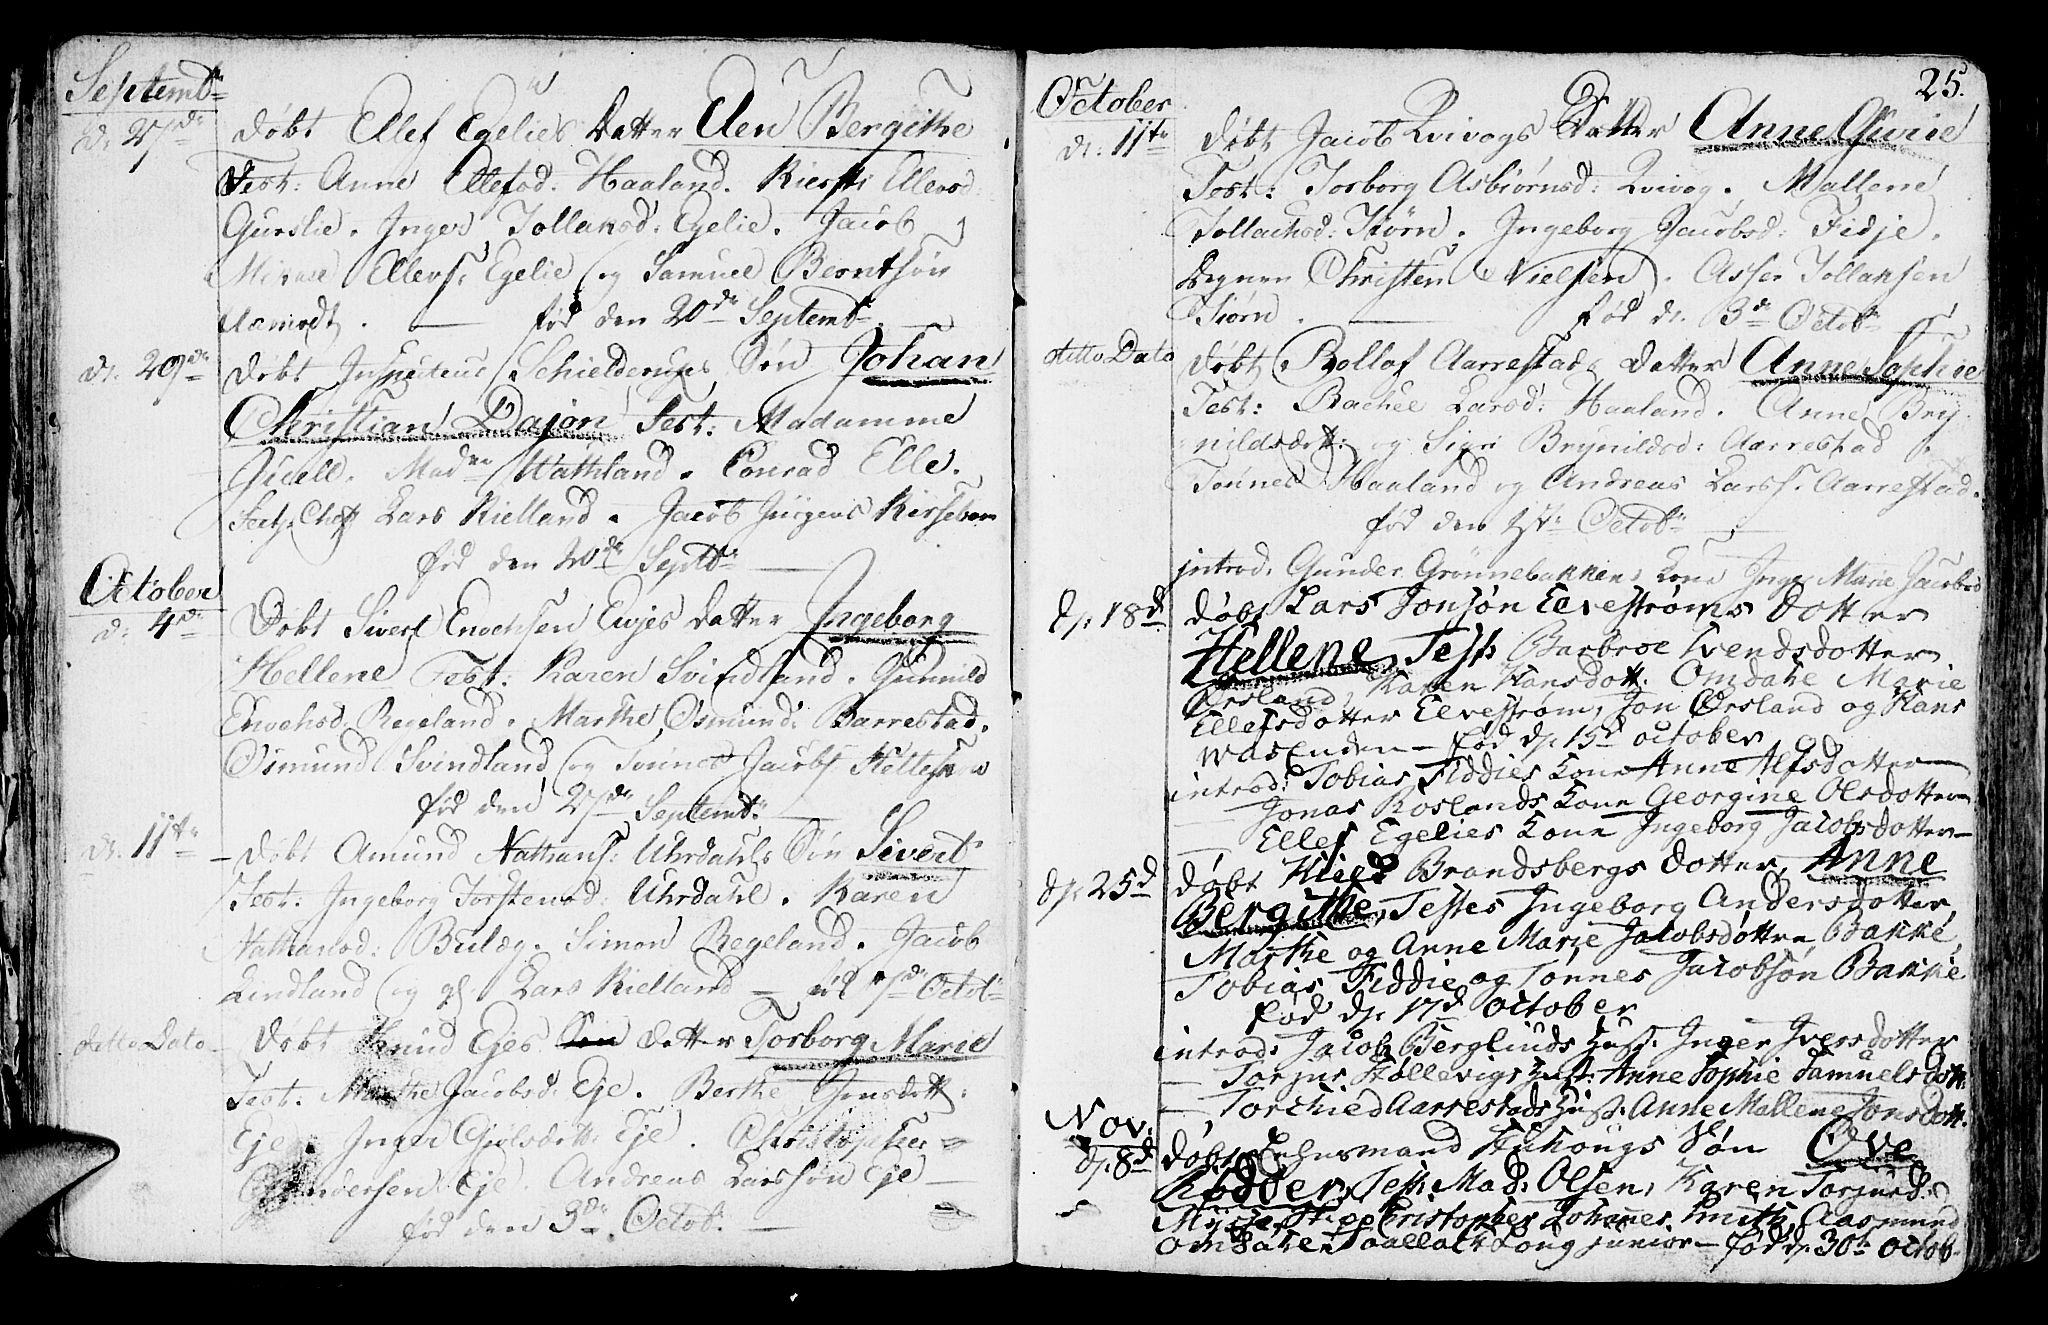 Septembr
d. 27de døbt Ellef Egelies Datter Elen Bergithe
Test: Anne Ellefsd. Haaland. Kiersti Ellevsd:
Gurslie. Inger Tollaksd: Egelie. Jacob
Ellevs: Egelie og Samuel Berntsøn
født den 20de Septembr
d. 29de døbt Inspecteur Schielderups Søn Johan
Christian Dajon Test: Madamme
Juell. Madme Wathland. Conrad Elle.
Lars Kielland. Jacob Jürgens
fød den 20de Septbr
October
d. 4de Døbt Sivert Enochsen Eies datter Ingeborg
Hellene Test: Karen Svindland. Gunnild
Enochsd Regeland. Marthe Osmund: Barrestad.
Osmund Svindland og Tønnes Jacobs
fød den 27de Septembr
d. 11te døbt Amund Nathans: Uhrdahls Søn Sivert
Test: Ingeborg Torstensd: Uhrdahl. Karen
Nathansd: Bulæg. Simon Regeland. Jacob
Lindland og gl. Lars Kielland — 7de Octobr
ditto Dato døbt Knud Ejes Søn datter Torborg Marie
Test. Marthe Jacobsd: Eje. Berthe Jensdatt:
Eje. Inger Eje. Christopher
Andersen Eje. Andreas Larssøn Eje —
fød den 3de Octob. —
25.
October
d. 11te døbt Jacob Qvivogs Datter Anne Gurie
Test: Torborg Asbiørnsd: Qvivog. Mallene
Tollachsd: Stiørn. Ingeborg Jacobsd: Fidje.
Degnen Christen Nielsen. Asser Tollaksen
Stiørn. — fød d. 3de Octobr
ditto Dato døbt Rollof Aarrestads datter Anne Sophie
Test: Rachel Larsd: Haaland. Anne Bry
nildsdatt: og Sigri Brynildsd: Aarrestad
Tønnes Haaland og Andreas Larss. Aarrestad.
fød den Octobr
introd. Gunder Grønnebakkens Kone Inger Marie Jacobsd
d: 18d døbt Lars Jonsøn Elvestrøms Dotter
Hellene, Test: Barbroe Svendsdotter
Ørsland, Karen Hansdott: Omdahl Marie
Ellefsdotter Elvestrøm, Jon Ørsland og Hans
Wasenden — fød d: 15d october
introd: Tobias Fiddies Kone Anne Alfsdotter
Jonas Roslands Kone Georgine Olsdotter
Ellef Egelies Kone Ingeborg Jacobsdotter —
d: 25d døbt Niels Brandsbergs dotter, Anne
Bergithe, Testes Ingeborg Andersdotter,
Marthe og Anne Marie Jacobsdøttre Bakke,
Tobias Fiddie og Tønnes Jacobsøn Bakke
fød d: 17d october
introd: Jacob Berglinds Hust. Inger Iversdotter
— Torjus Støllevigs Hust: Anne Sophie Samuelsdott:
— Torchied Aarrestads Hust: Anne Mallene Jonsdott.
Nov:
d: 8d døbt Lehnsmand Stuhougs Søn Ove
Rødder, Test: Mad: Olsen, Karen Torjusd:
Christopher Johannes Smith, Aasmund
Omdahl Long junior — fød d: 30te octob